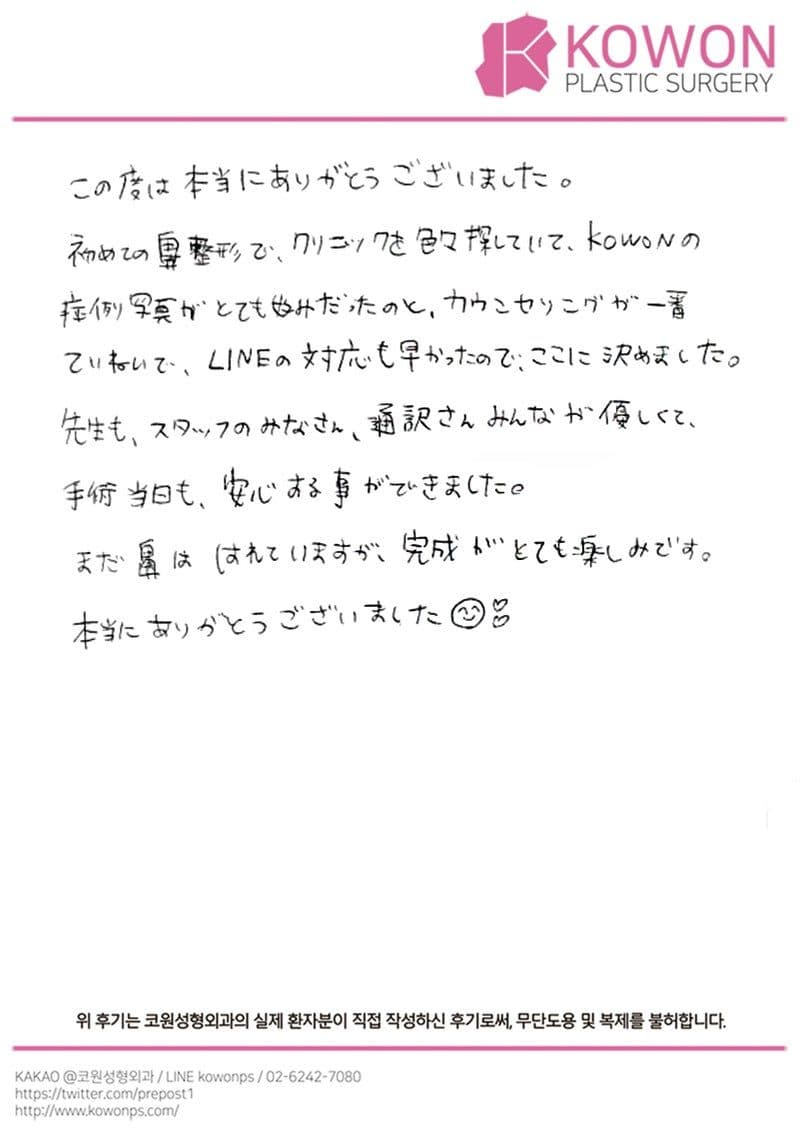 KOWON
PLASTIC SURGERY
この度は本当にありがとうございました。
初めての鼻整形で、クリニックを色々探していて、KOWONの
症例写真がとても好みだったのと、カウンセリングが一番
ていねいで、LINEの対応も早かったので、ここに決めました。
先生も、スタッフのみなさん、通訳さんみんなが優しくて、
手術当日も、安心する事ができました。
まだ鼻ははれていますが、完成がとても楽しみです。
本当にありがとうございました
위 후기는 코원성형외과의 실제 환자분이 직접 작성하신 후기로써, 무단도용 및 복제를 불허합니다.
KAKAO @코원성형외과 / LINE kowonps / 02-6242-7080
https://twitter.com/prepost1
http://www.kowonps.com/